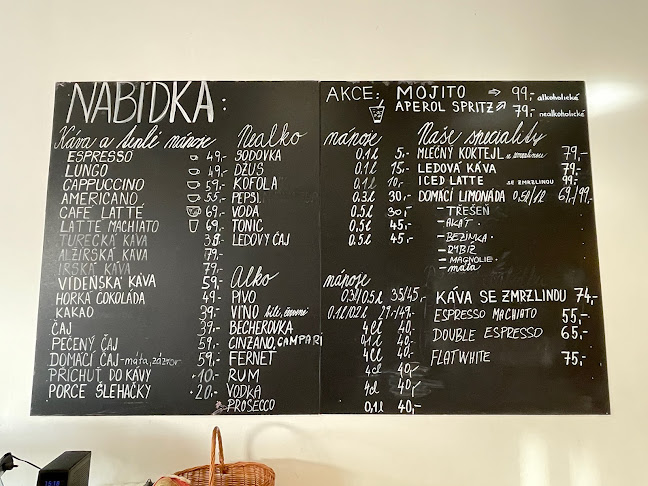 NABÍDKA:
Káva a teplé nápoje
ESPRESSO 49,-
LUNGO 49,-
CAPPUCCINO 59,-
AMERICANO 55,-
CAFÉ LATTÉ 69,-
LATTE MACHIATO 69,-
TURECKÁ KÁVA 38,-
ALŽÍRSKÁ KÁVA 79,-
IRSKÁ KÁVA 79,-
VÍDEŇSKÁ KÁVA 59,-
HORKÁ ČOKOLÁDA 49,-
KAKAO 39,-
ČAJ 39,-
PEČENÝ ČAJ 59,-
DOMÁCÍ ČAJ - máta, zázvor 59,-
PŘÍCHUŤ DO KÁVY +10,-
PORCE ŠLEHAČKY +20,-
Nealko nápoje
SODOVKA 0.1l 5,-
DŽUS 0.1l 15,-
KOFOLA 0.1l 10,-
PEPSI 0.3l 30,-
VODA 0.5l 30,-
TONIC 0.5l 45,-
LEDOVÝ ČAJ 0.5l 45,-
Alko nápoje
PIVO 0.3l/0.5l 35/45,-
VÍNO bílé, červené 0.1l/0.2l 29,-/49,-
BECHEROVKA 4cl 40,-
CINZANO, CAMPARI 0.1l 40,-
FERNET 4cl 40,-
RUM 4cl 40,-
VODKA 4cl 40,-
PROSECCO 0,1l 40,-
AKCE: MOJITO 99,- alkoholické
APEROL SPRITZ 79,- nealkoholické
Naše speciality
MLÉČNÝ KOKTEJL 79,-
LEDOVÁ KÁVA 79,-
ICED LATTE SE ZMRZLINOU 99,-
DOMÁCÍ LIMONÁDA 0,5l/1l 69,-/99,-
- TŘEŠEŇ
- AKÁT
- BEZINKA
- RYBÍZ
- MAGNOLIE
- máta
KÁVA SE ZMRZLINOU 74,-
ESPRESSO MACHIATO 55,-
DOUBLE ESPRESSO 65,-
FLATWHITE 75,-